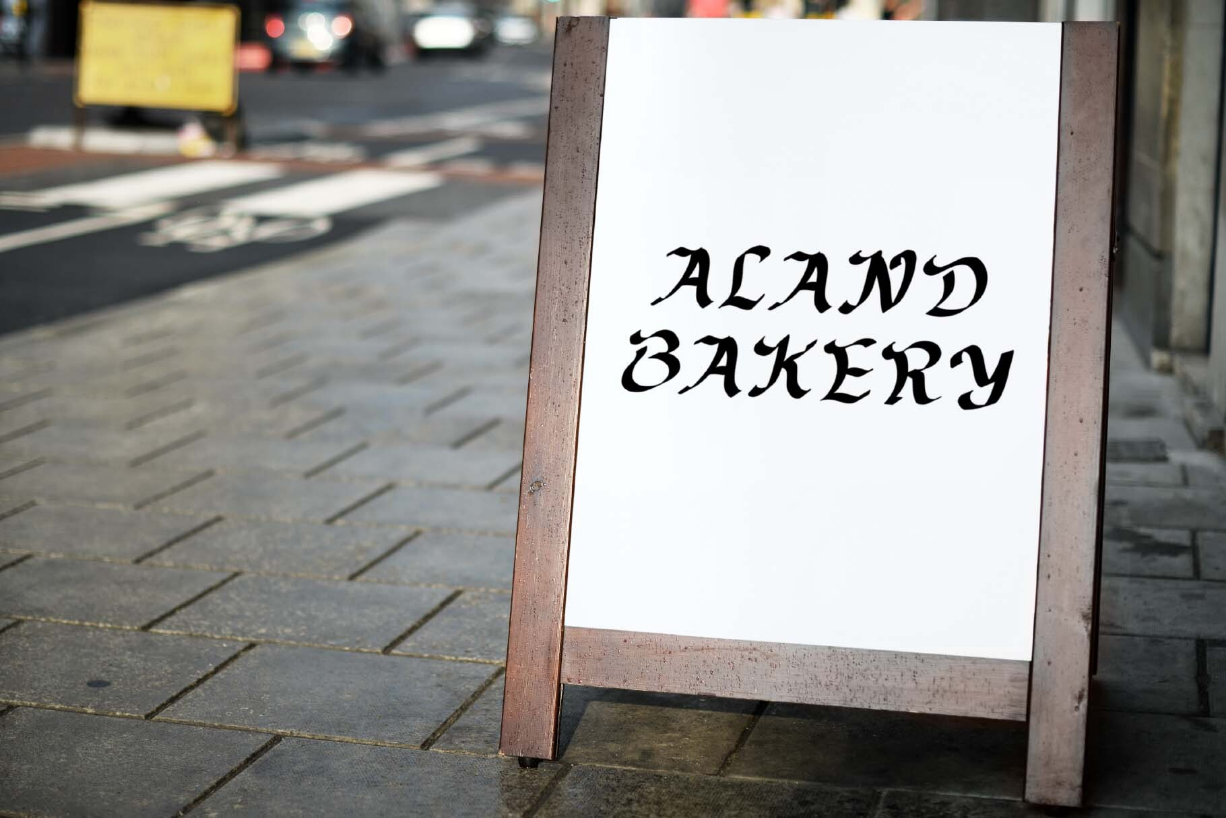 ALAND
BAKERY